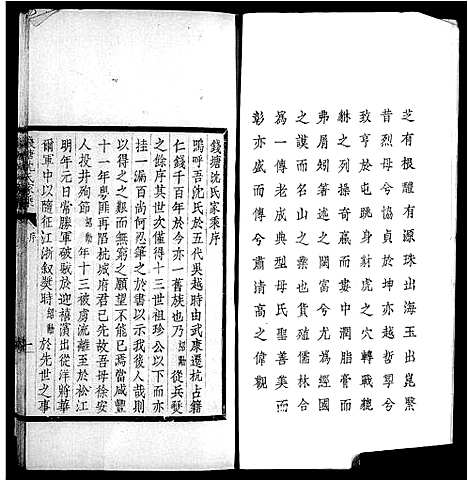 芝有根醴有源珠出海玉出崑繄
昔烈母兮貞協於坤亦越哲嗣兮
致亨於屯跳身於虎之穴轉戰龍
之列操奇贏而棄中潤脂膏而
弗屑矧著述之閎富兮尤為經國
之謨而名山之業也貨殖儒林合
為一傳老成典型母氏聖善美而
彰亦盛而傳兮肅清高之偉觀
錢塘沈氏家乘序
嗚呼吾沈氏於五代吳越時由武康遷杭占籍
仁錢千百年於今亦一舊族也乃 從兵燹
之餘序其世次僅得十三世祖珍公以下而亦
挂一漏百尚何忍筆之於書以示後人哉則
以得之之艱而無窮之願望不能已焉當咸豐
十一年粵匪再陷杭城府君已先故吾母徐安
人投井殉節 年十三被虜流離至於松江
明年元日常勝軍破賊於迎禧濱出從洋將華
爾軍中以隨征江浙敘獎時 於先世之事
錢塘沈氏家乘 序